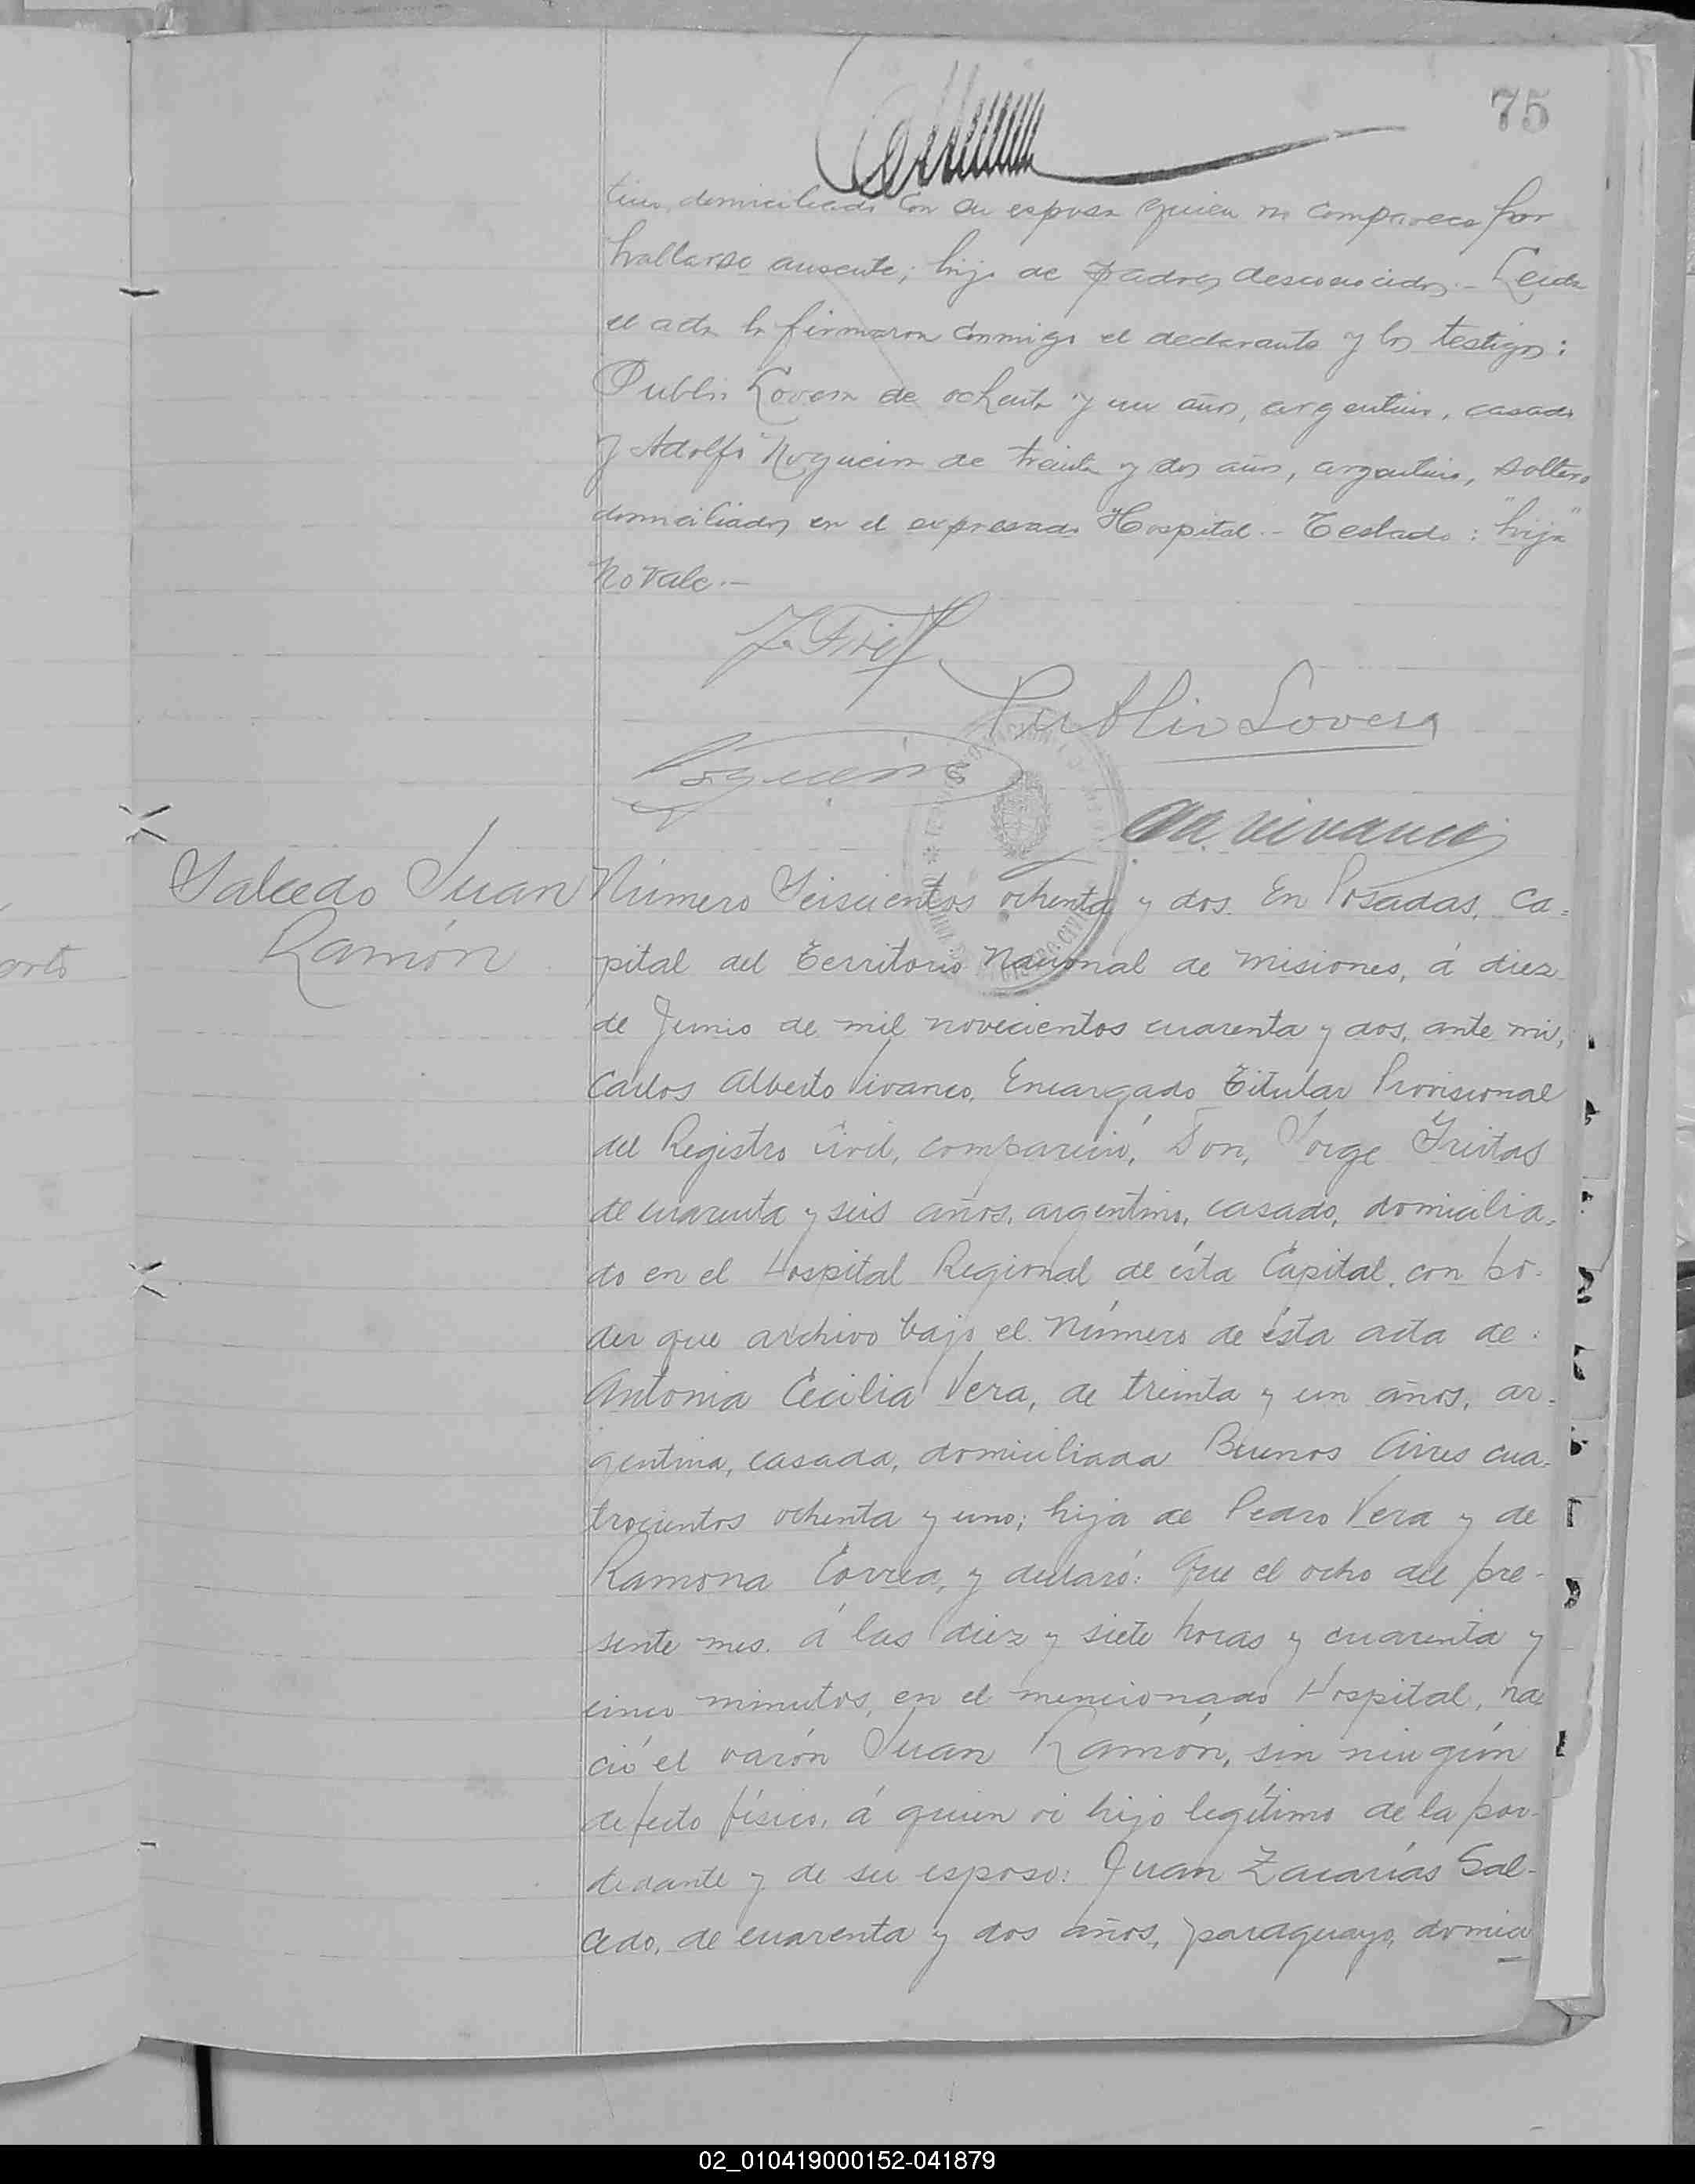 75
tino, domiciliado con su esposa quien no comparece por
hallarse ausente; hijo de padres desconocidos.- Leida
el acta la firmaron conmigo el declarante y los testigos:
Publio Lovera de ochenta y un años, argentino, casado
y Adolfo Nogueira de treinta y dos años, argentino, soltero
domiciliados en el expresado Hospital.- Testado: "hija"
no vale.-
Publio Lovera
Nogueira
Salcedo Juan
Ramón
Número Seiscientos ochenta y dos. En Posadas, Ca=
pital del Territorio Nacional de Misiones, á diez
de Junio de mil novecientos cuarenta y dos, ante mi,
Carlos Alberto Vivanco, Encargado Titular Provisional
del Registro Civil, compareció, Don, Jorge Freitas
de cuarenta y seis años, argentino, casado, domicilia=
do en el Hospital Regional de ésta Capital, con po-
der que archivo bajo el Número de ésta acta de:
Antonia Cecilia Vera, de treinta y un años, ar=
gentina, casada, domiciliada Buenos Aires cua=
trocientos ochenta y uno; hija de Pedro Vera y de
Ramona Correa, y declaró: Que el ocho del pre-
sente mes. á las diez y siete horas y cuarenta y
cinco minutos, en el mencionado Hospital, na=
ció el varón Juan Ramón, sin ningún
defecto físico, á quien vi hijo legítimo de la po-
derdante y de su esposo: Juan Zacarías Sal-
cedo, de cuarenta y dos años, paraguayo, domici
02_010419000152-041879